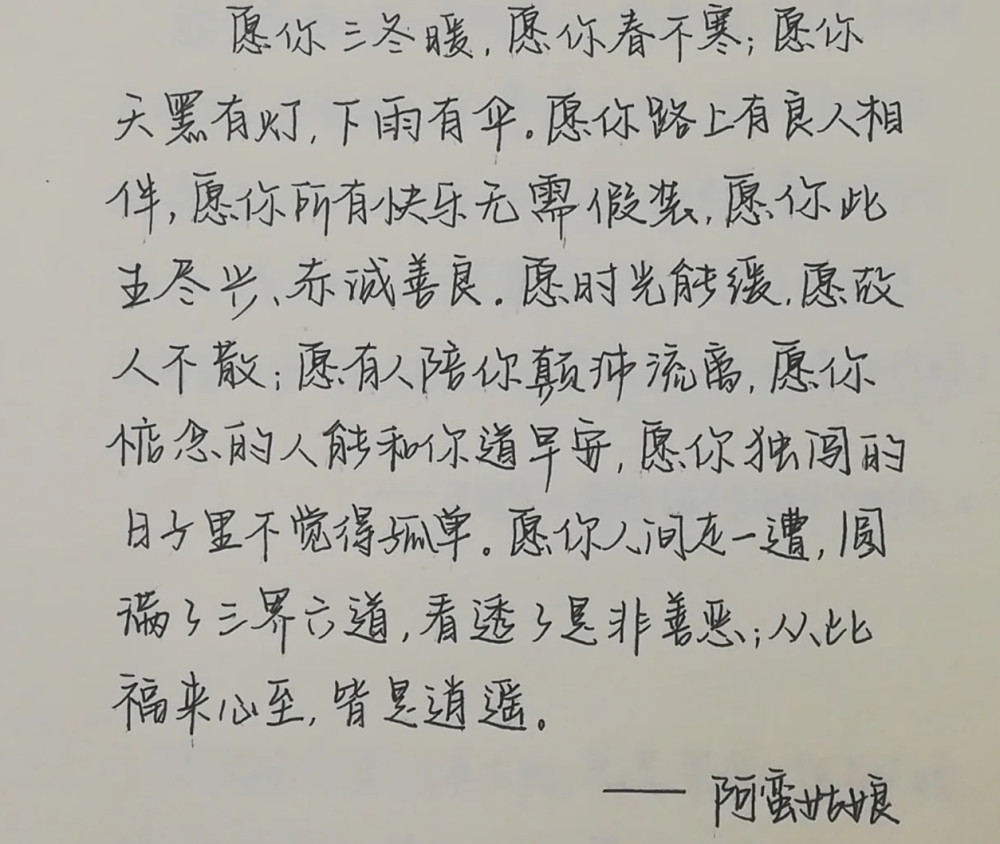 愿你三冬暖，愿你春不寒；愿你
天黑有灯，下雨有伞。愿你路上有良人相
伴，愿你所有快乐无需假装，愿你此
生尽兴、赤诚善良。愿时光能缓，愿故
人不散；愿有人陪你颠沛流离，愿你
惦念的人能和你道早安，愿你独闯的
日子里不觉得孤单。愿你人间走一遭，圆
满了三界六道，看透了是非善恶；从此
福来心至，皆是逍遥。
—— 阿蛮姑娘